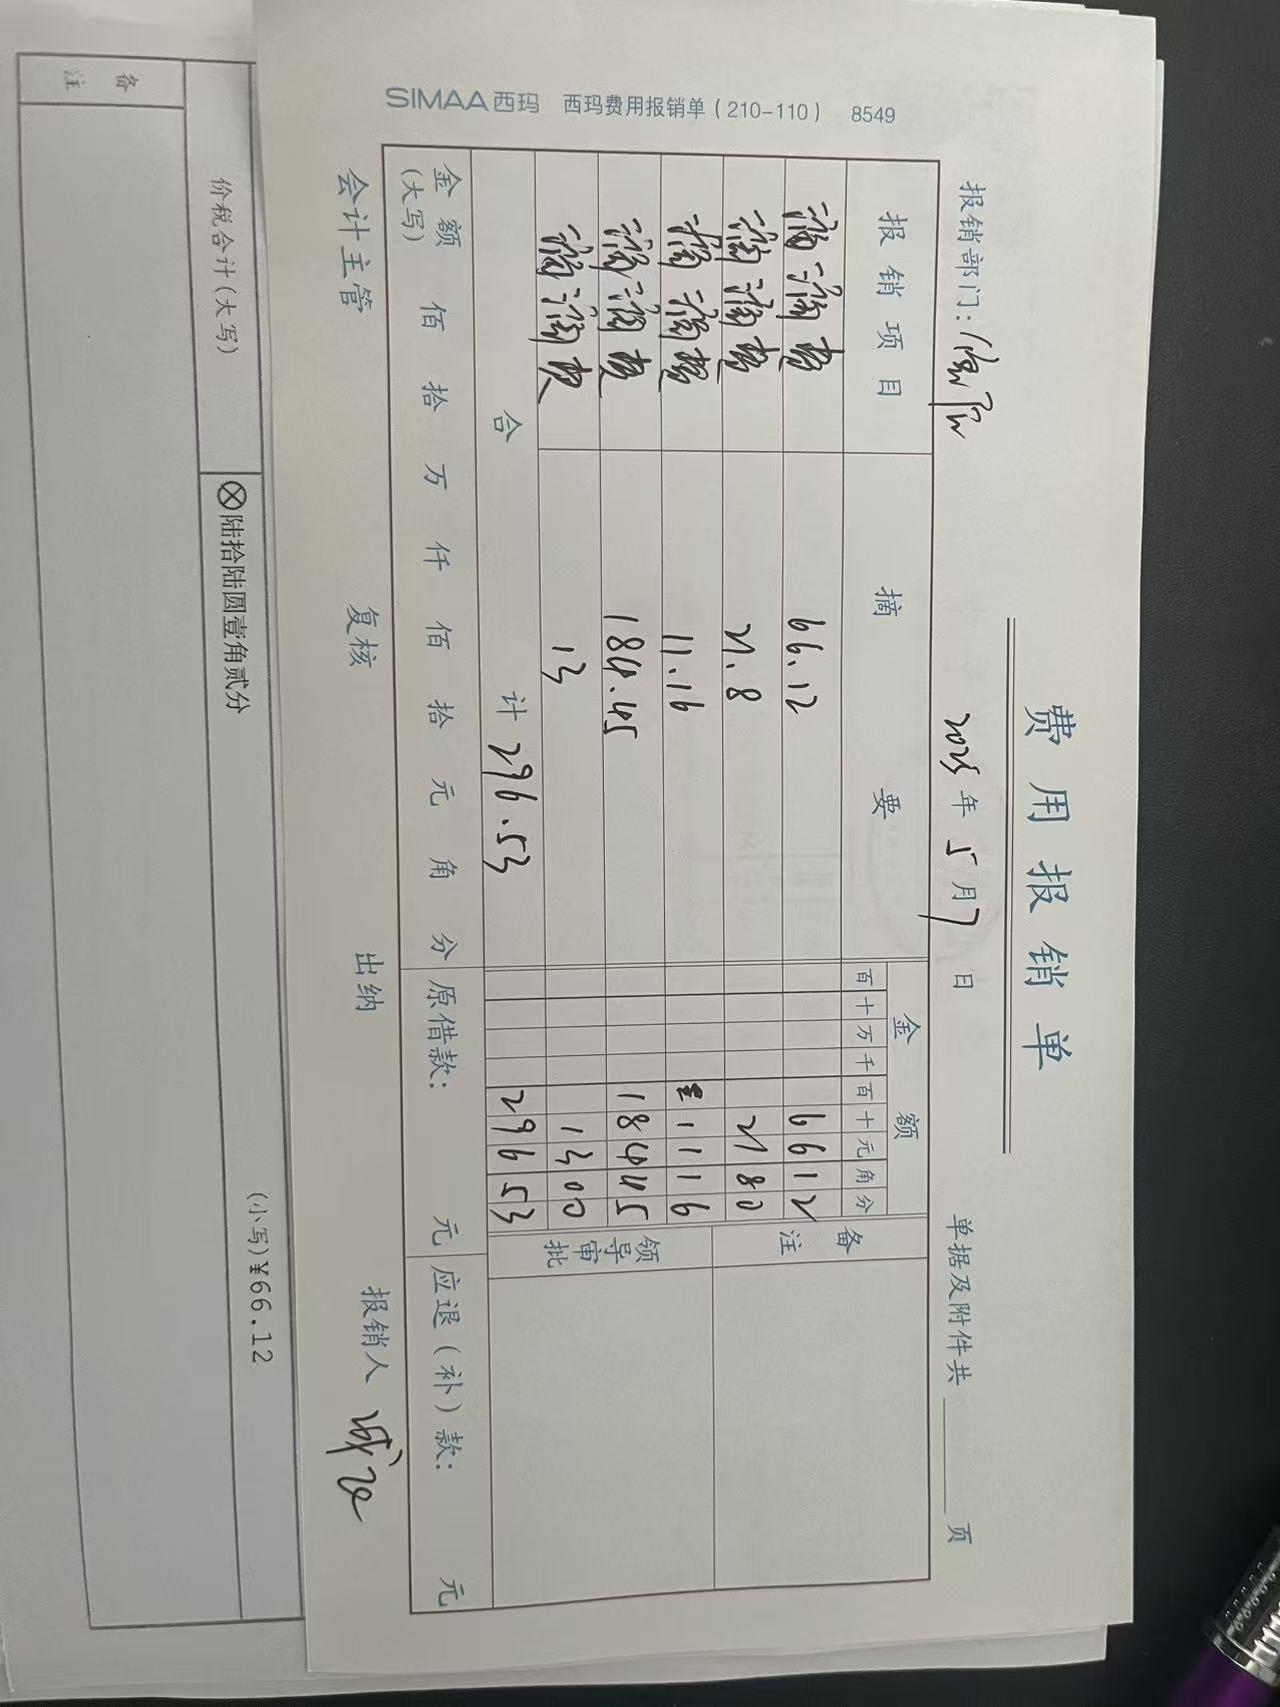 费用报销单
报销部门: 2025年5月7日 单据及附件共 页
报销项目 摘要 金额 备注
百十万千百十元角分
滴滴费 66.12 6612
滴滴费 21.8 2180
滴滴费 11.16 1116
滴滴费 184.45 18445 领导审批
滴滴费 13 1300
合计 296.53 29653
金额(大写) 佰拾万仟佰拾元角分 原借款: 元 应退(补)款: 元
会计主管 复核 出纳 报销人
SIMAA西玛 西玛费用报销单(210-110) 8549
价税合计(大写) ⊗陆拾陆圆壹角贰分 (小写)¥66.12
备注